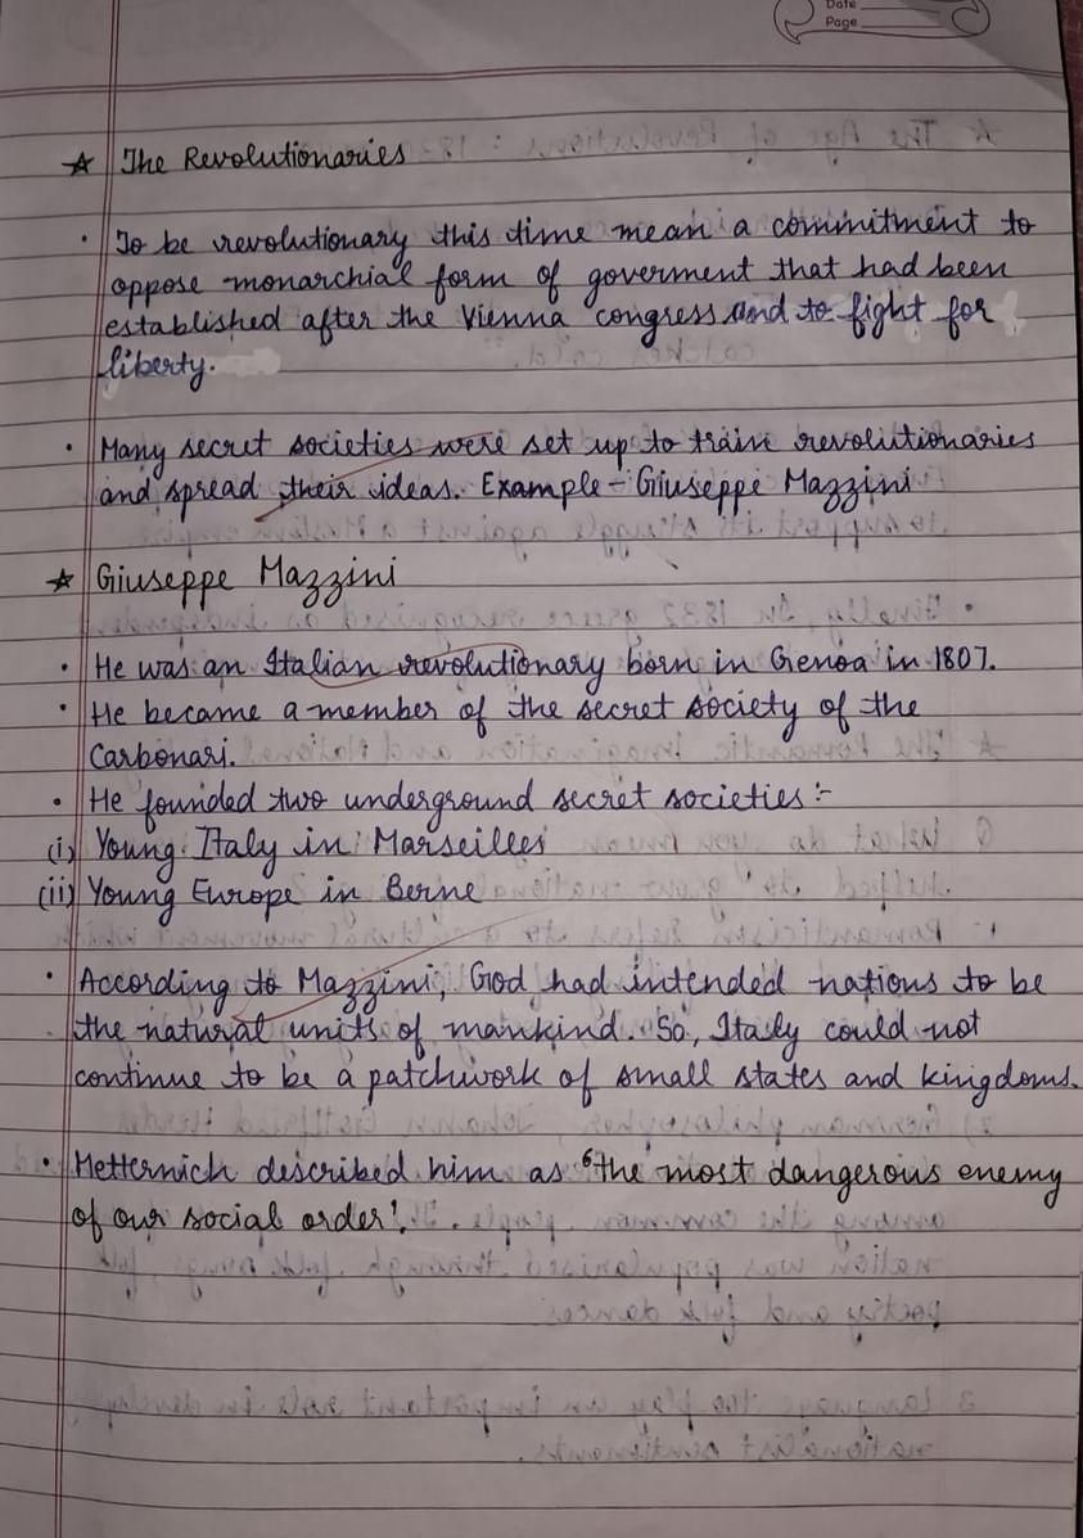 Date
Page
☆ The Revolutionaries
• To be revolutionary this time mean a commitment to
oppose monarchial form of goverment that had been
established after the Vienna congress and to fight for
liberty.
• Many secret societies were set up to train revolutionaries
and spread their ideas. Example - Giuseppe Mazzini
☆ Giuseppe Mazzini
• He was an Italian revolutionary born in Genoa in 1807.
• He became a member of the secret society of the
Carbonari.
• He founded two underground secret societies :-
(i) Young Italy in Marseilles
(ii) Young Europe in Berne
• According to Mazzini, God had intended nations to be
the natural units of mankind. So, Italy could not
continue to be a patchwork of small states and kingdoms.
• Metternich described him as 'the most dangerous enemy
of our social order'.